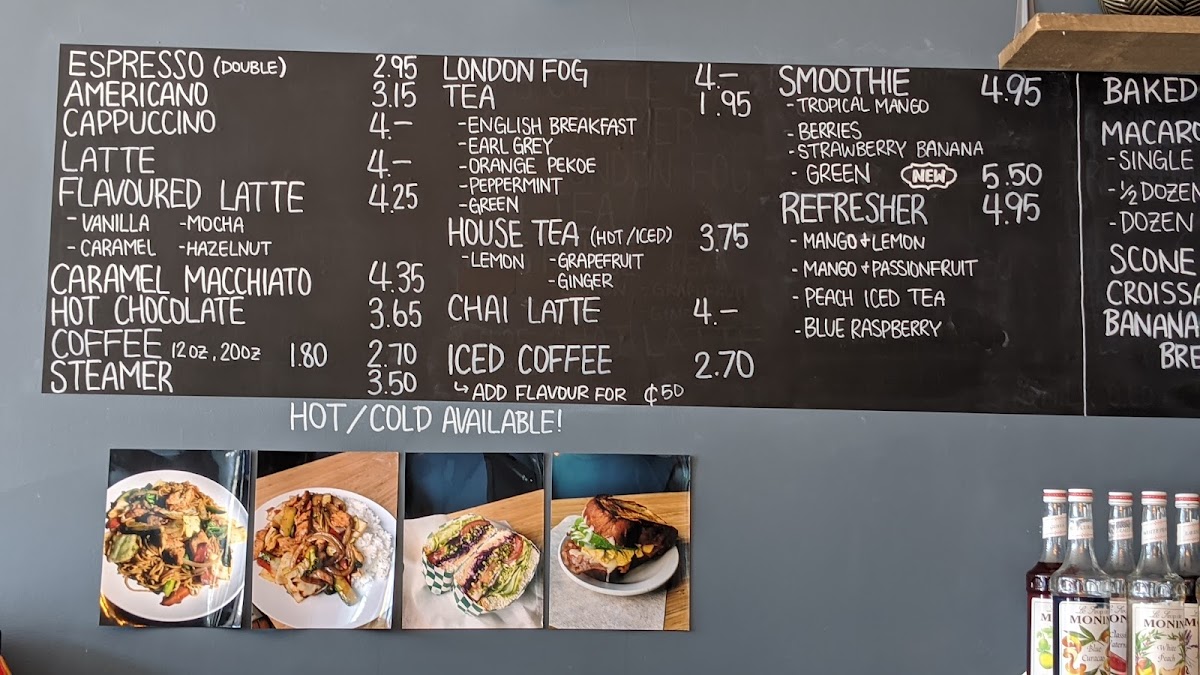 ESPRESSO (DOUBLE) 2.95
AMERICANO 3.15
CAPPUCCINO 4.—
LATTE 4.—
FLAVOURED LATTE 4.25
- VANILLA - MOCHA
- CARAMEL - HAZELNUT
CARAMEL MACCHIATO 4.35
HOT CHOCOLATE 3.65
COFFEE 12oz, 20oz 1.80 2.70
STEAMER 3.50
LONDON FOG 4.—
TEA 1.95
- ENGLISH BREAKFAST
- EARL GREY
- ORANGE PEKOE
- PEPPERMINT
- GREEN
HOUSE TEA (HOT/ICED) 3.75
- LEMON - GRAPEFRUIT
- GINGER
CHAI LATTE 4.—
ICED COFFEE 2.70
↳ ADD FLAVOUR FOR ¢50
SMOOTHIE 4.95
- TROPICAL MANGO
- BERRIES
- STRAWBERRY BANANA
- GREEN NEW 5.50
REFRESHER 4.95
- MANGO + LEMON
- MANGO + PASSIONFRUIT
- PEACH ICED TEA
- BLUE RASPBERRY
BAKED
MACARO
- SINGLE
- ½ DOZEN
- DOZEN
SCONE
CROISSA
BANANA
BRE
HOT/COLD AVAILABLE!
MONIN
Blue Curacao
MONIN
White Peach